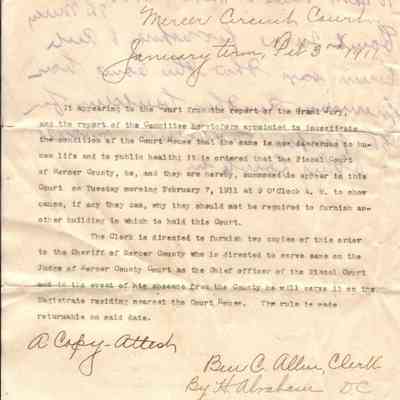 Mercer Circuit Court
January term, Feb 3rd 1911
It appearing to the Court from the report of the Grand Jury,
and the report of the Committee heretofore appointed to investigate
the condition of the Court House that the same is now dangerous to hu-
man life and to public health; it is ordered that the Fiscal Court
of Mercer County, be, and they are hereby, summoned to appear in this
Court on Tuesday morning February 7, 1911 at 9 O'Clock A. M. to show
cause, if any they can, why they should not be required to furnish an-
other building in which to hold this Court.
The Clerk is directed to furnish two copies of this order
to the Sheriff of Mercer County who is directed to serve same on the
Judge of Mercer County Court as the Chief officer of the Fiscal Court
and in the event of his absence from the County he will serve it on the
Magistrate residing nearest the Court House. The rule is made
returnable on said date.
A Copy-Attest
Ben C. Allin, Clerk
By H Abraham DC